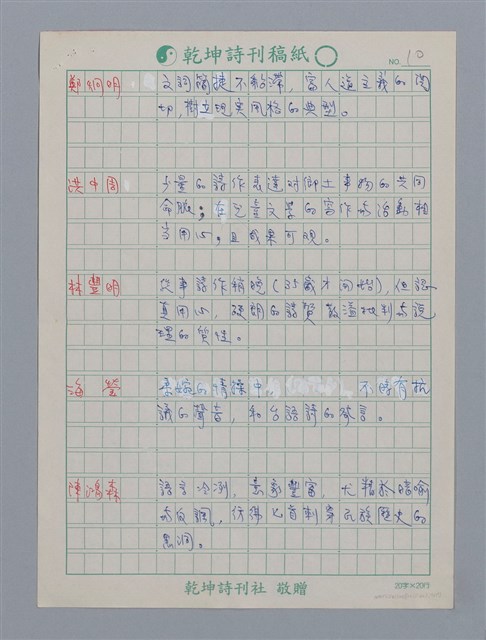 乾坤詩刊稿紙
NO. 10
鄭炯明 文詞簡捷不黏滯，富人道主義的關
切，樹立現實風格的典型。
洪中周 少量的詩作表達對鄉土事物的共同
命脈；在兒童文學的寫作與活動相
當用心，且成果可視。
林豐明 從事詩作稍晚（35歲才開始），但認
真用心，硬朗的詩質散溢批判與說
理的質性。
海瑩 柔婉的情操中 不時有抗
議的聲音，和台語詩的發言。
陳鴻森 語言冷冽，意象豐富，尤精於暗喻
與反諷，彷彿匕首刺穿民族歷史的
黑洞。
乾坤詩刊社 敬贈
20字×20行